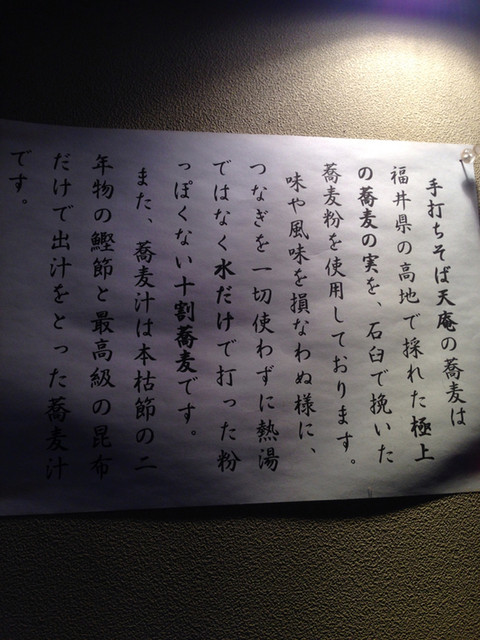 手打ちそば天庵の蕎麦は
福井県の高地で採れた極上
の蕎麦の実を、石臼で挽いた
蕎麦粉を使用しております。
味や風味を損なわぬ様に、
つなぎを一切使わずに熱湯
ではなく水だけで打った粉
っぽくない十割蕎麦です。
また、蕎麦汁は本枯節の二
年物の鰹節と最高級の昆布
だけで出汁をとった蕎麦汁
です。